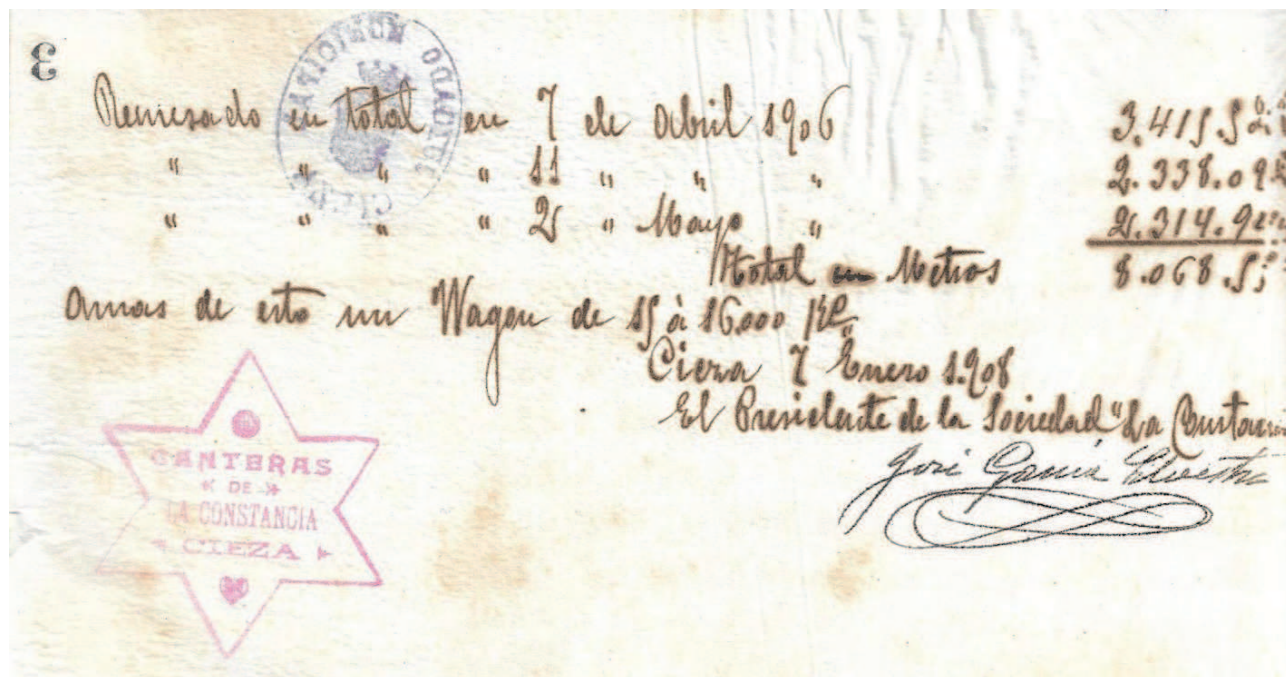 3
JUZGADO MUNICIPAL
CIEZA
Remesado en total en 7 de Abril 1906 3.415.5
" " " " 11 " " " 2.338.09
" " " " 2 " Mayo " 2.314.9
Total en Metros 8.068.5
Amas de esto un Wagon de 15 à 16.000 Kl
Cieza 7 Enero 1.908
El Presidente de la Sociedad "La
José García
CANTERAS
DE
LA CONSTANCIA
CIEZA